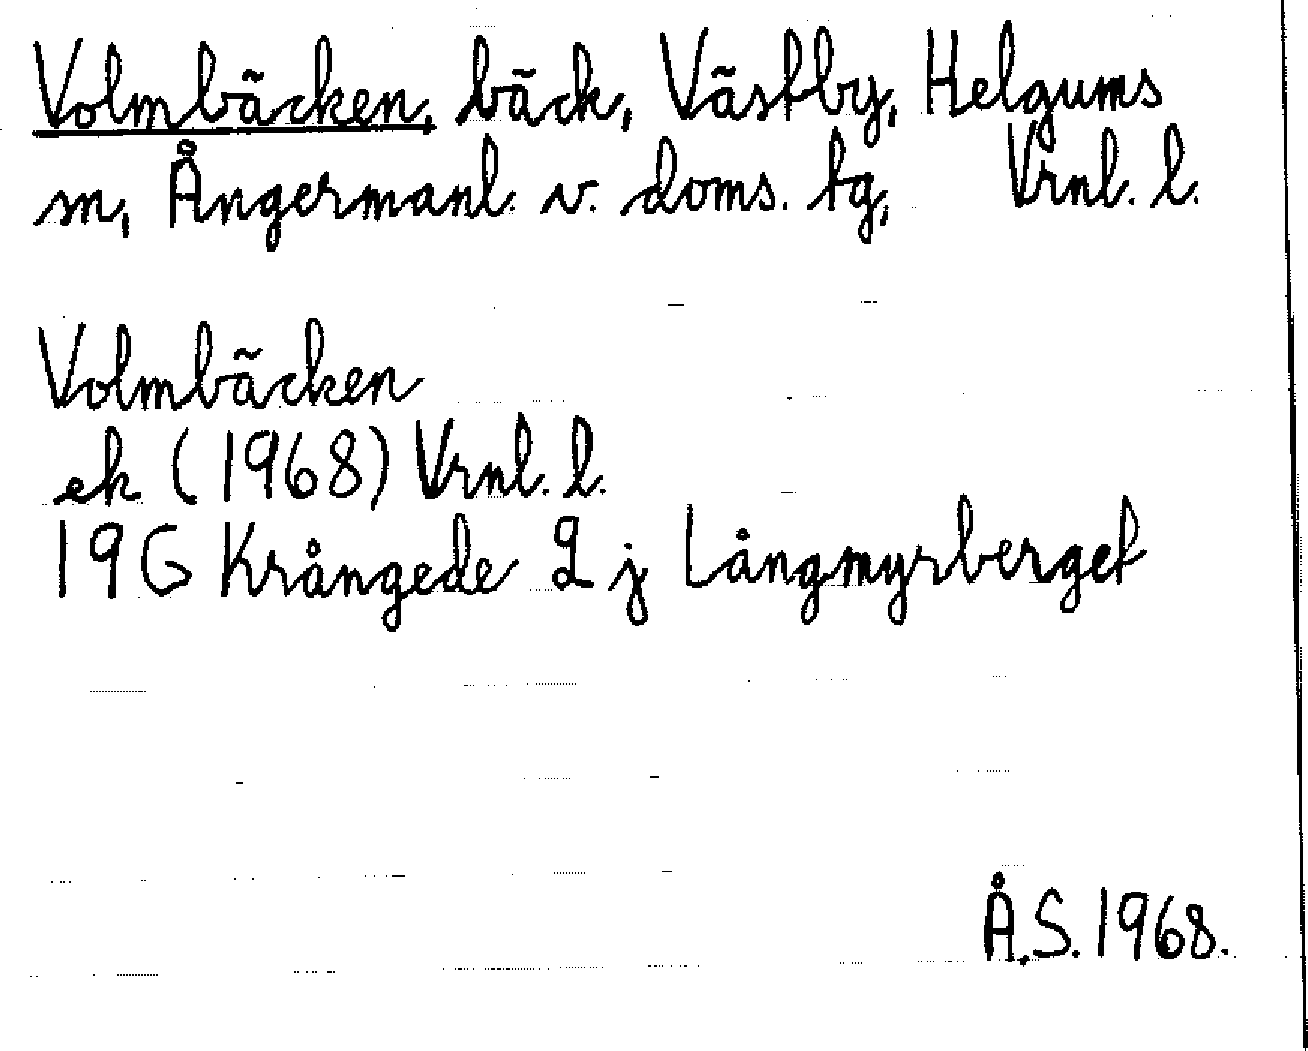 Volmbäcken, bäck, Västby, Helgums
sn, Ångermanl. v. doms. tg, Vrnl. l.
Volmbäcken
ek (1968) Vrnl. l.
19G Krångede 2 j Långmyrberget
Å.S. 1968.